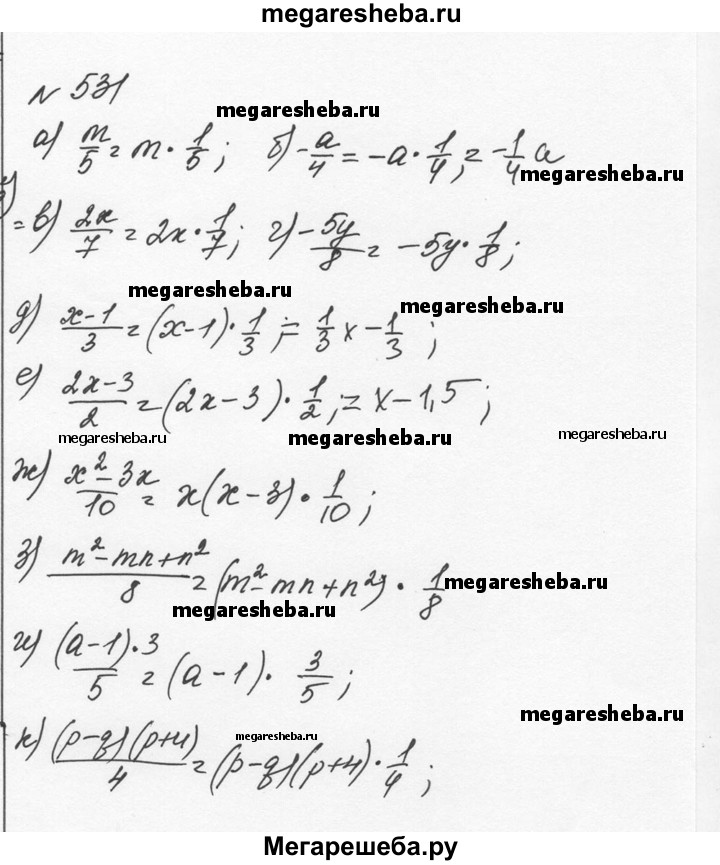 megaresheba.ru
№ 531
megaresheba.ru
а) m/5 = m · 1/5 ; б) -a/4 = -a · 1/4 ; = -1/4 a
megaresheba.ru
= в) 2x/7 = 2x · 1/7 ; г) -5y/8 = -5y · 1/8 ;
megaresheba.ru
megaresheba.ru
д) x-1/3 = (x-1) · 1/3 ; = 1/3 x - 1/3 ;
е) 2x-3/2 = (2x-3) · 1/2 ; = x-1,5 ;
megaresheba.ru megaresheba.ru megaresheba.ru
ж) x²-3x/10 = x(x-3) · 1/10 ;
з) m²-mn+n²/8 = (m²-mn+n²) · 1/8
megaresheba.ru
megaresheba.ru
и) (a-1)·3/5 = (a-1) · 3/5 ;
megaresheba.ru
megaresheba.ru
к) (p-q)(p+4)/4 = (p-q)(p+4) · 1/4 ;
Мегарешеба.ру